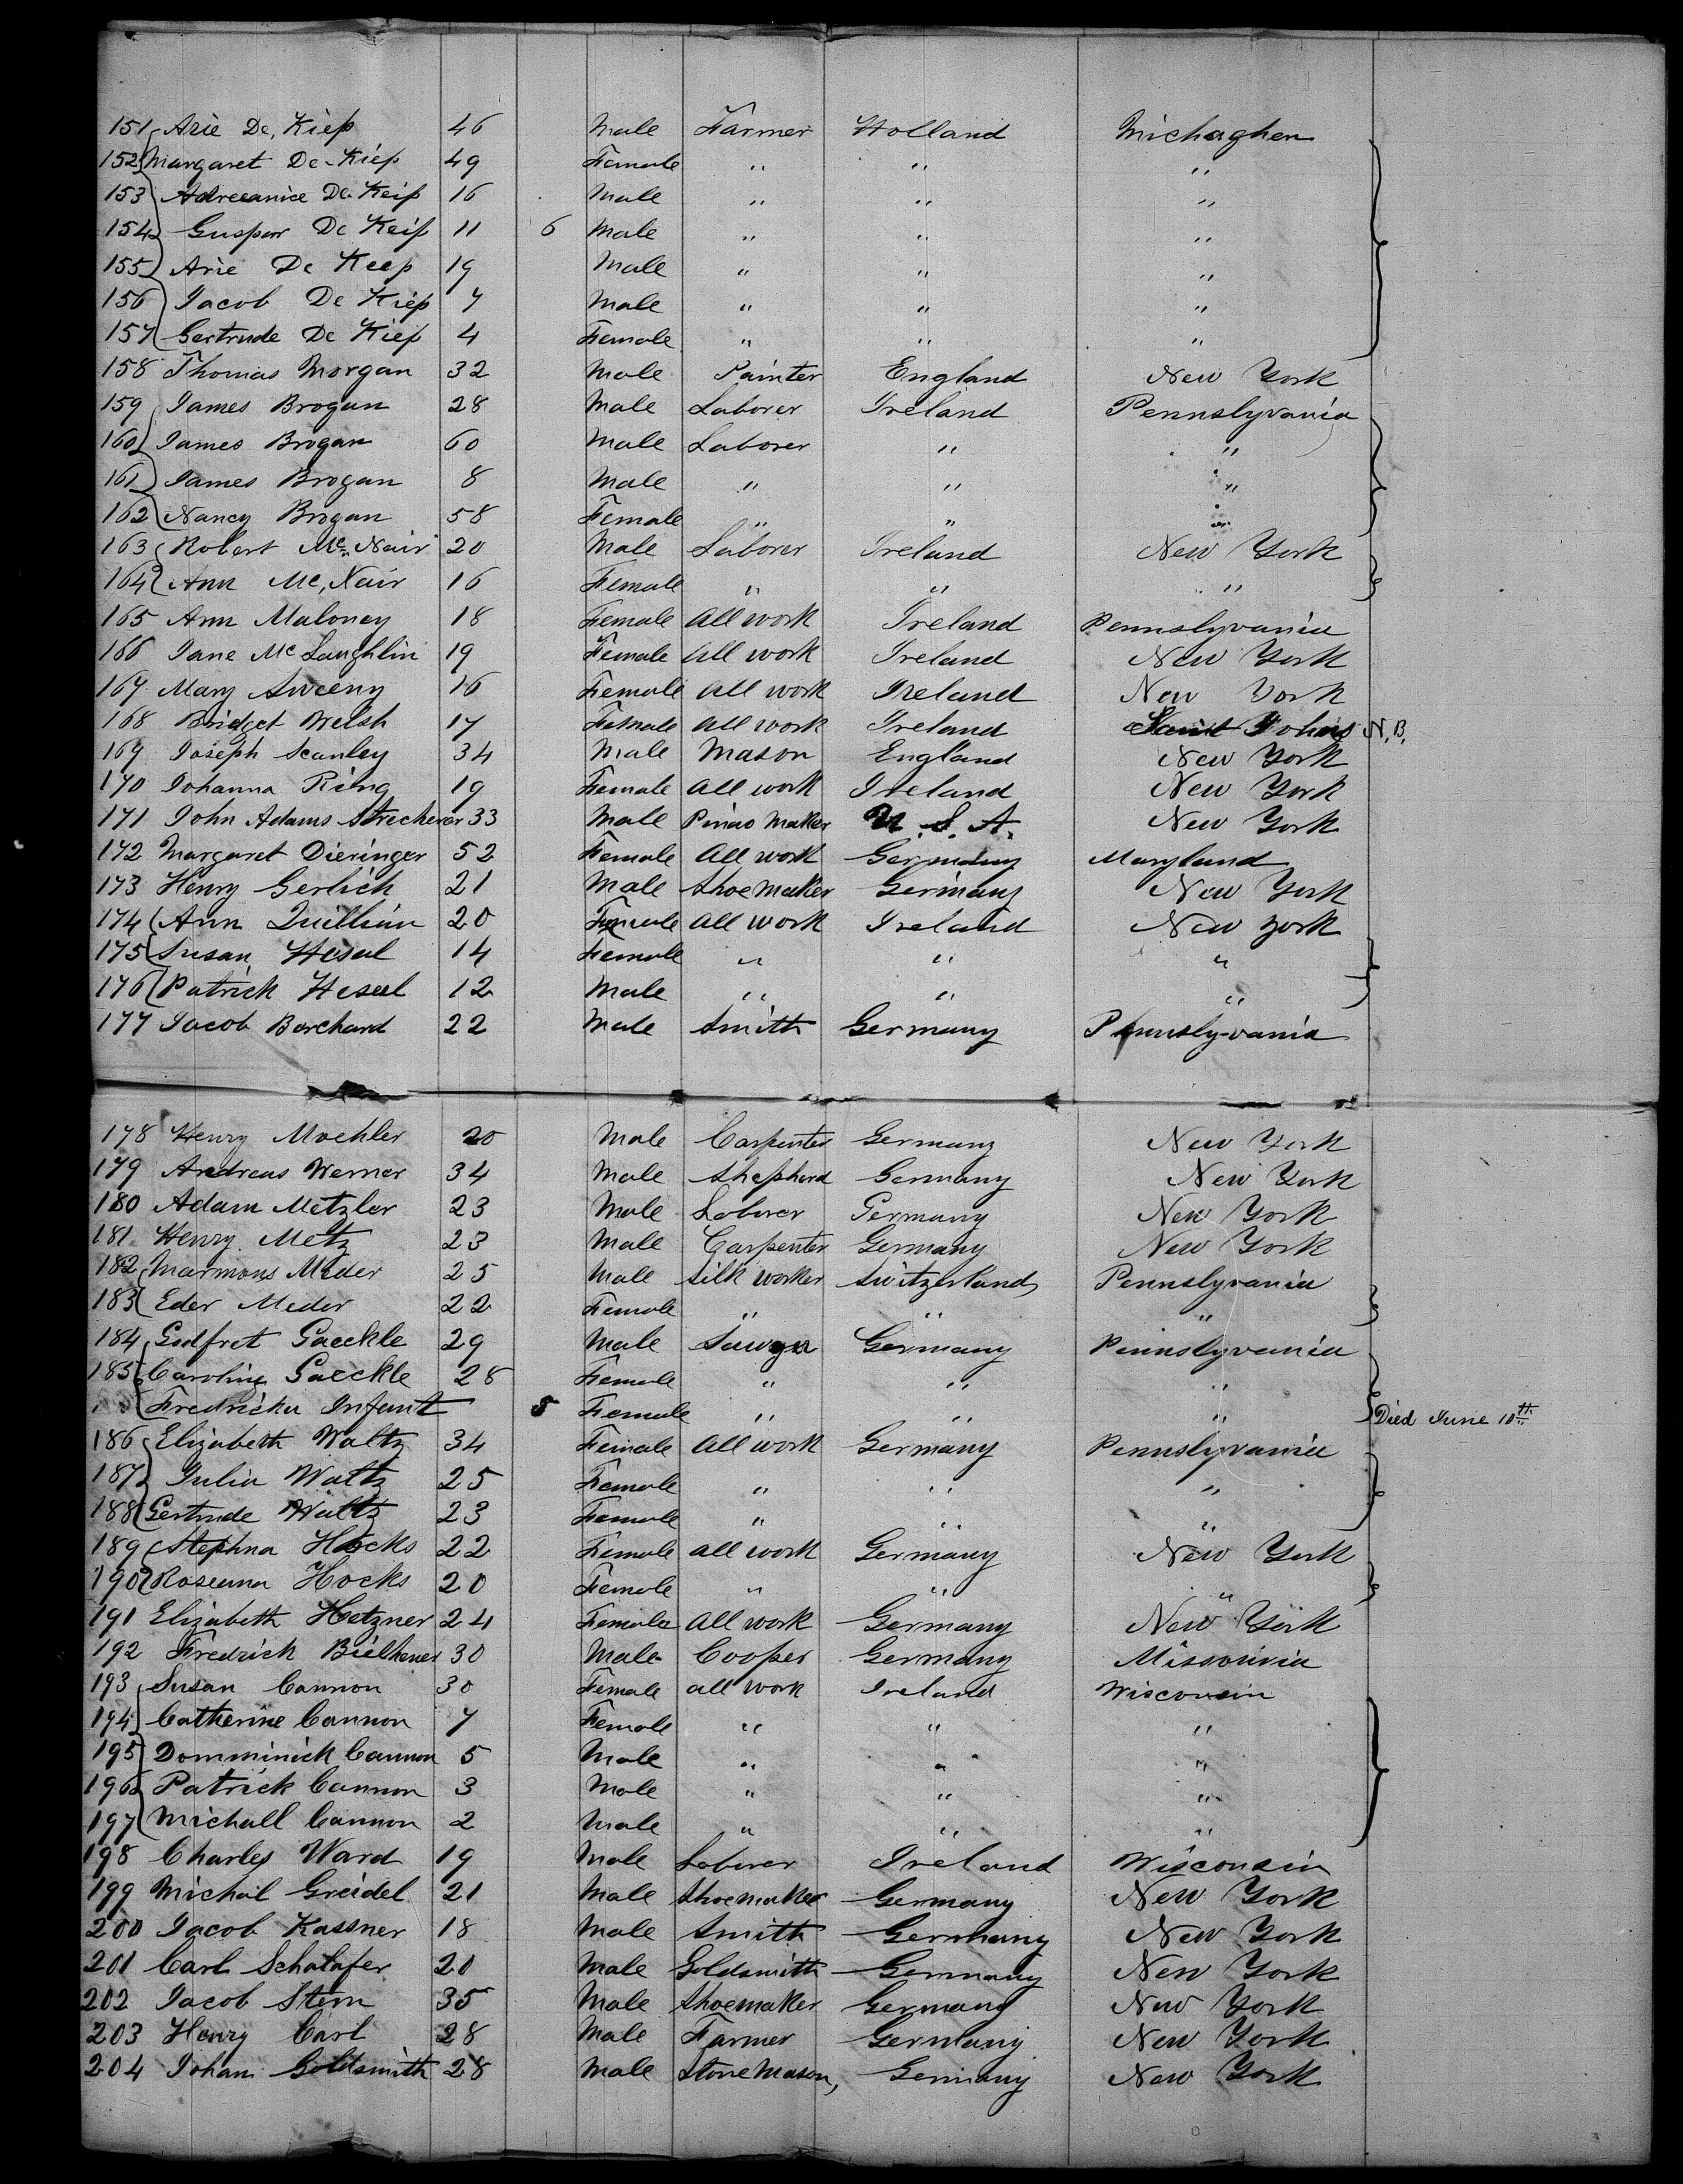 151 Arie De, Kiep 46 Male Farmer Holland Michaghen
152 Margaret De Kiep 49 Female " " "
153 Adreeanice De Keip 16 Male " " "
154 Guspar De Keip 11 6 Male " " "
155 Arie De Keep 19 Male " " "
156 Jacob De Kiep 7 Male " " "
157 Gertrude De Kiep 4 Female " " "
158 Thomas Morgan 32 Male Painter England New York
159 James Brogan 28 Male Laborer Ireland Pennslyvania
160 James Brogan 60 Male Laborer " "
161 James Brogan 8 Male " " "
162 Nancy Brogan 58 Female " " "
163 Robert Mc Nair 20 Male Laborer Ireland New York
164 Ann Mc, Nair 16 Female " " "
165 Ann Maloney 18 Female All work Ireland Pennslyvania
166 Jane Mc Laughlin 19 Female All work Ireland New York
167 Mary Sweeny 16 Female All work Ireland New York
168 Bridget Welsh 17 Female All work Ireland Saint Johns N.B.
169 Joseph Scanley 34 Male Mason England New York
170 Johanna Ring 19 Female All work Ireland New York
171 John Adams Strecherer 33 Male Pinao Maker U. S. A. New York
172 Margaret Dieringer 52 Female All work Germany Maryland
173 Henry Gerlich 21 Male Shoe Maker Germany New York
174 Ann Quillian 20 Female All work Ireland New York
175 Susan Hesul 14 Female " " "
176 Patrick Hesul 12 Male " " "
177 Jacob Borchard 22 Male Smith Germany Pennsly-vania
178 Henry Moehler 20 Male Carpenter Germany New York
179 Andreas Werner 34 Male Shepherd Germany New York
180 Adam Metzler 23 Male Laborer Germany New York
181 Henry Metz 23 Male Carpenter Germany New York
182 Marmons Meder 25 Male Silk worker Switzerland Pennslyvania
183 Eder Meder 22 Female " " "
184 Gudfret Gaeckle 29 Male Sawyer Germany Pennslyvania
185 Caroline Gaeckle 28 Female " " "
Fredricka Infant 5 Female " " " Died June 10th
186 Elizabeth Waltz 34 Female All work Germany Pennslyvania
187 Julia Waltz 25 Female " " "
188 Gertrude Waltz 23 Female " " "
189 Stephna Hocks 22 Female All work Germany New York
190 Roseanna Hocks 20 Female " " "
191 Elizabeth Hetzner 24 Female All work Germany New York
192 Fredrick Bielhener 30 Male Cooper Germany Missouria
193 Susan Cannon 30 Female All work Ireland Wisconsin
194 Catherine Cannon 7 Female " " "
195 Domminick Cannon 5 Male " " "
196 Patrick Cannon 3 Male " " "
197 Michall Cannon 2 Male " " "
198 Charles Ward 19 Male Laborer Ireland Wisconsin
199 Michal Greidel 21 Male Shoemaker Germany New York
200 Jacob Kassner 18 Male Smith Germany New York
201 Carl Schalafer 20 Male Goldsmith Germany New York
202 Jacob Stern 35 Male Shoemaker Germany New York
203 Henry Carl 28 Male Farmer Germany New York
204 Johan Goldsmith 28 Male Stone Mason, Germany New York